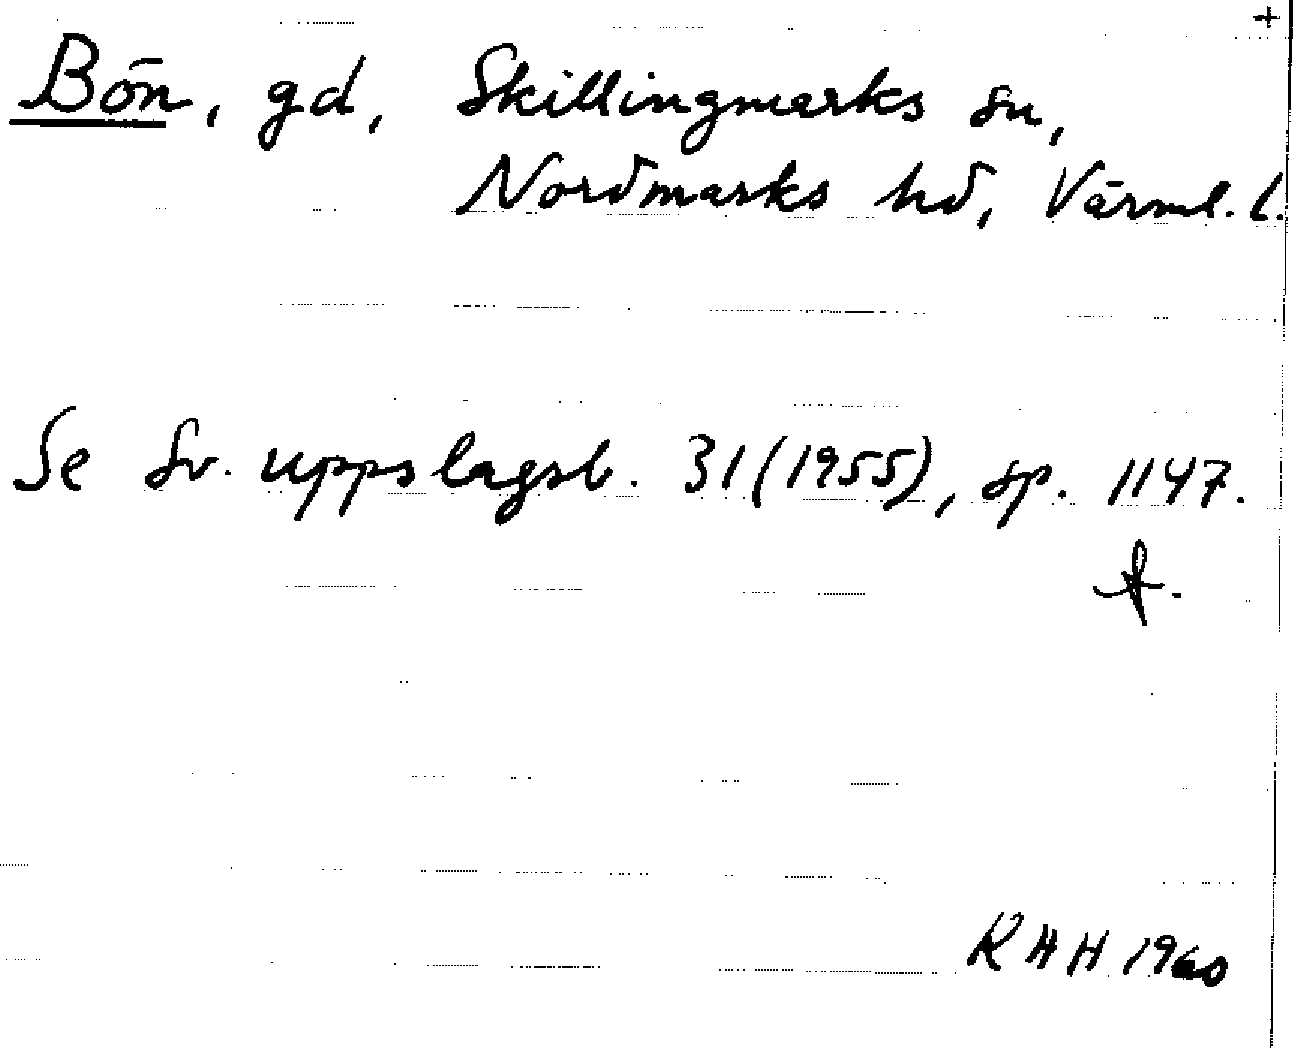 +
Bön, gd, Skillingmarks sn,
Nordmarks hd, Värml. l.
Se Sv. uppslagsb. 31(1955), sp. 1147.
RAH 1960